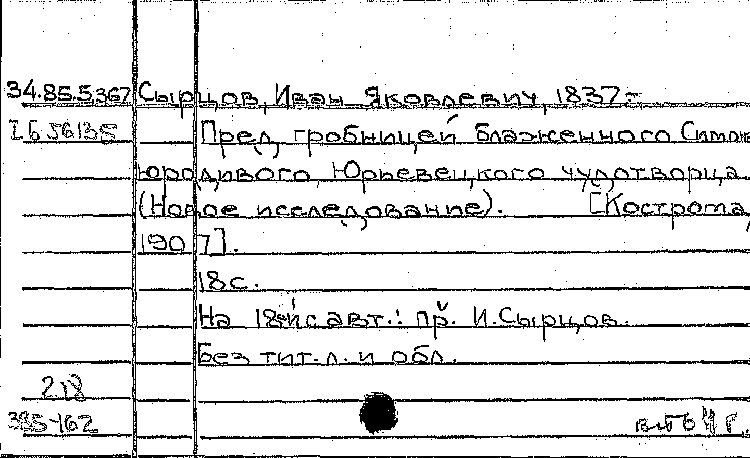 34.85.5.367 Сырцов, Иван Яковлевич, 1837-
Пред гробницей блаженного Симона
юродивого, Юрьевецкого чудотворца.
(Новое исследование). [Кострома,
1907].
18 с.
На 18-й с. авт.: пр. И. Сырцов.
Без тит. л. и обл.
218
385-162